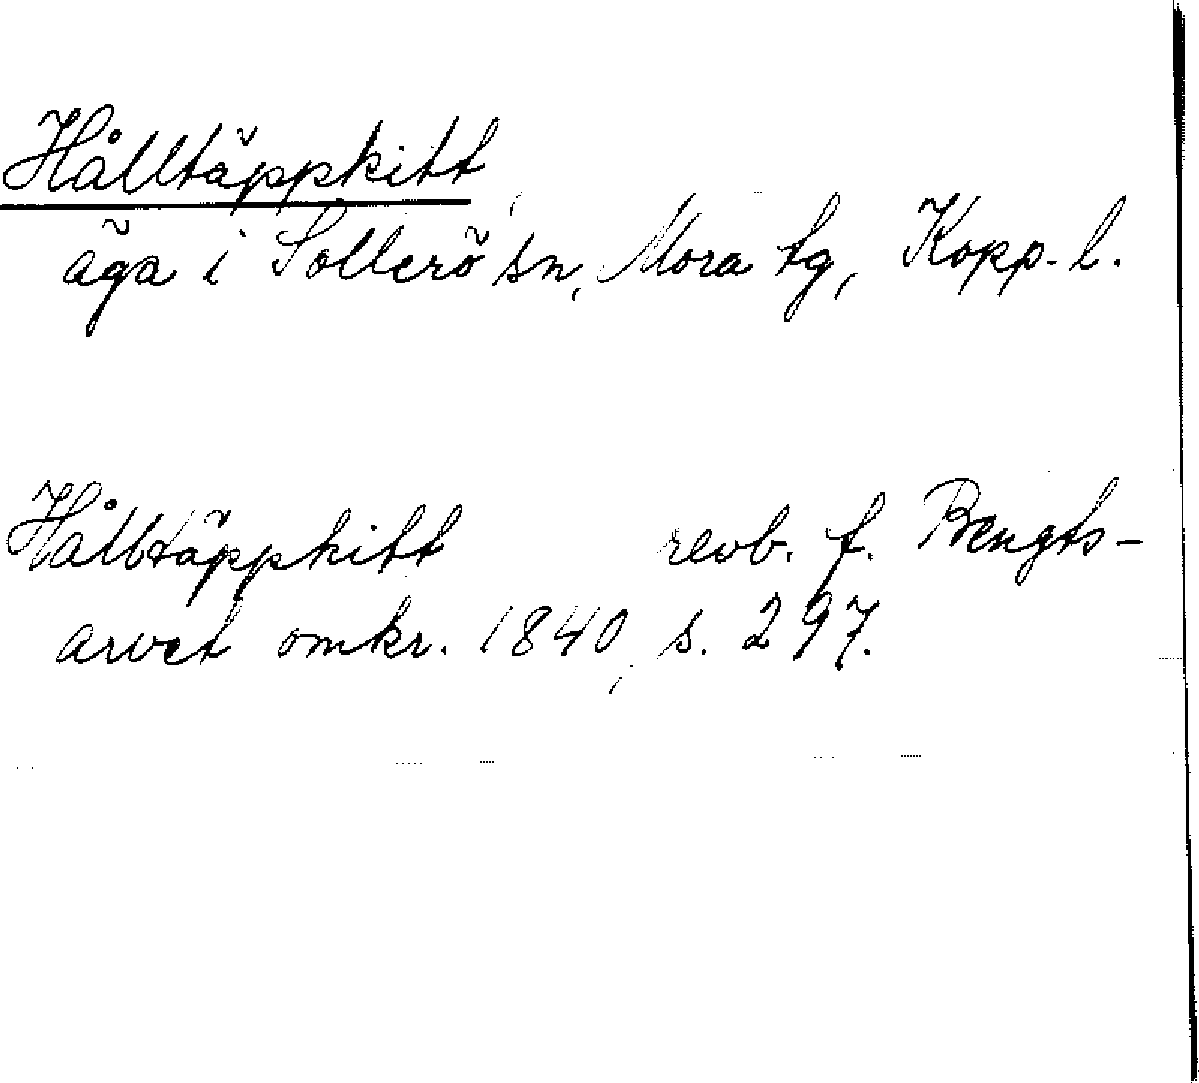 Hålltäppkitt,
äga i Sollerö sn, Mora tg, Kopp. l.
Hålltäppkitt revb. f. Bengts-
arvet omkr. 1840, s. 297.